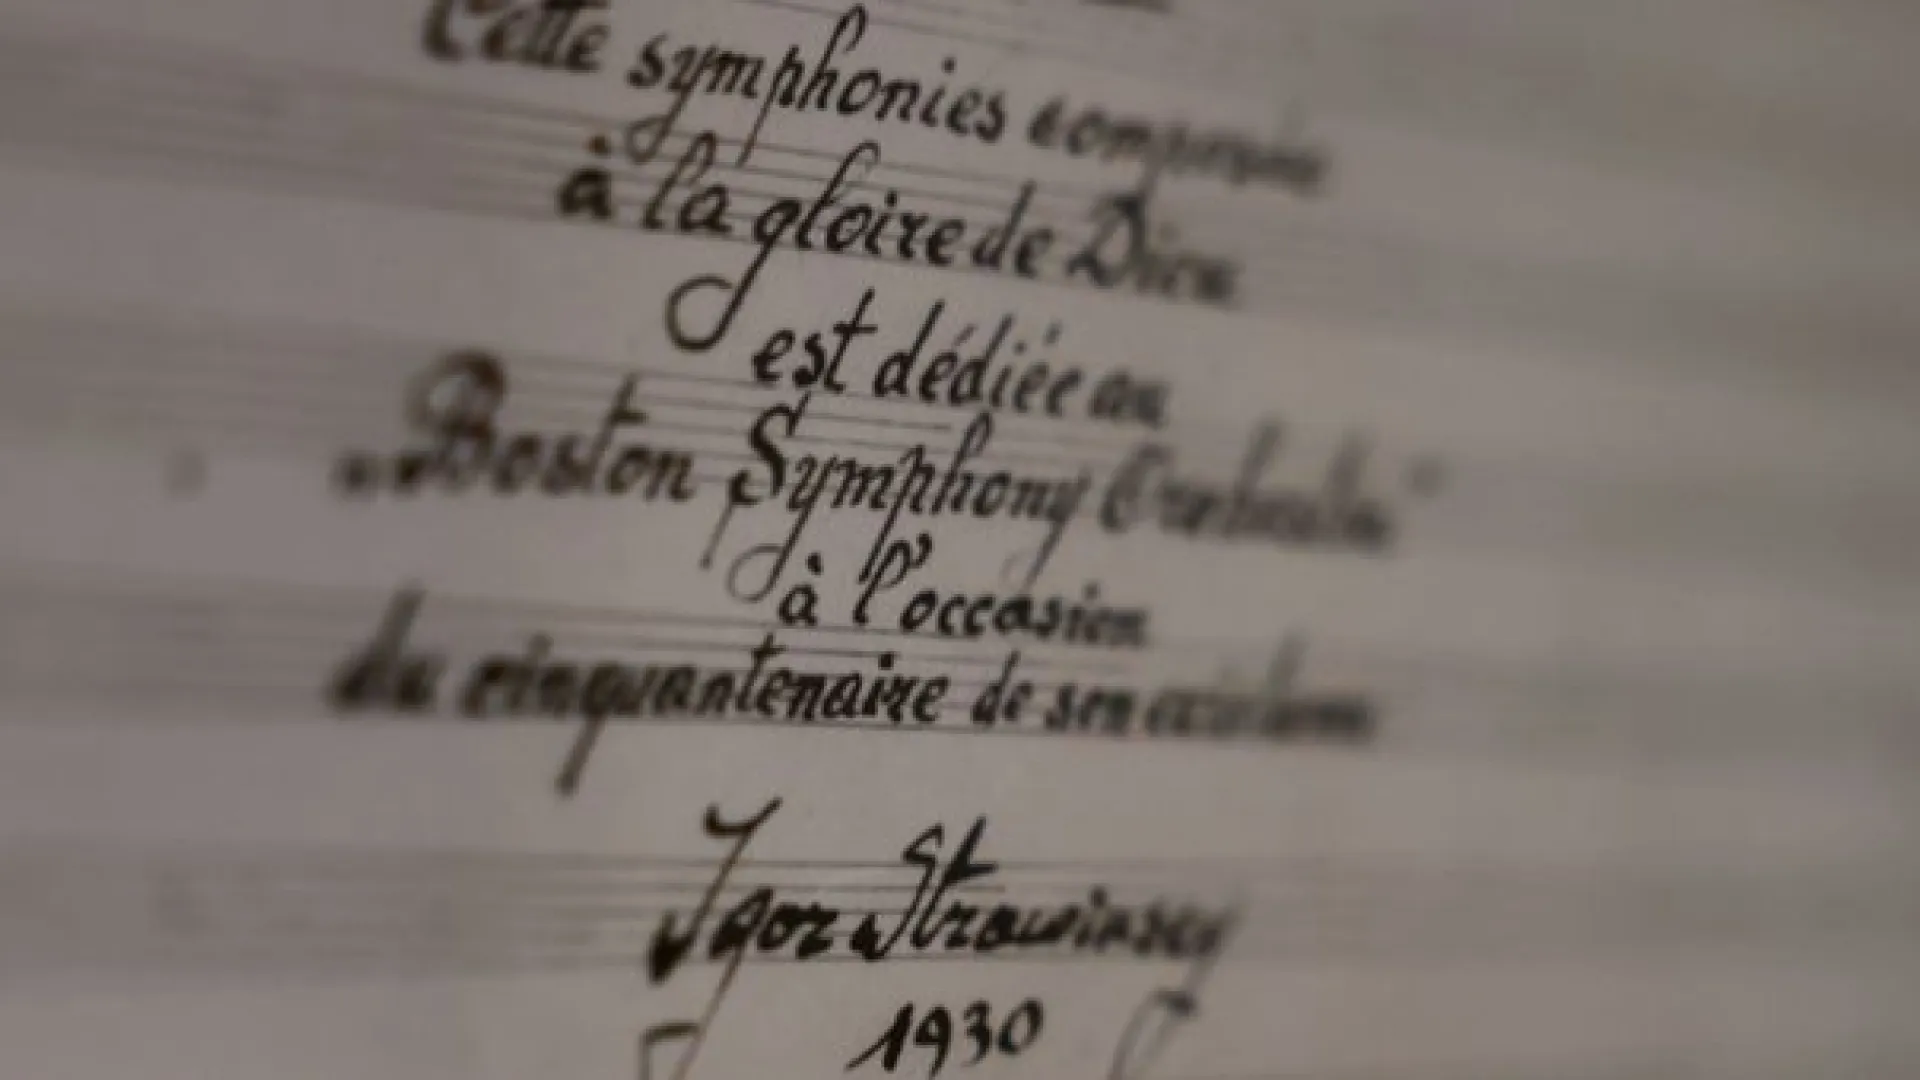 Cette symphonies composée
à la gloire de Dieu
est dédiée au
"Boston Symphony Orchestra"
à l'occasion
du cinquantenaire de son existence
Igor Strawinsky
1930